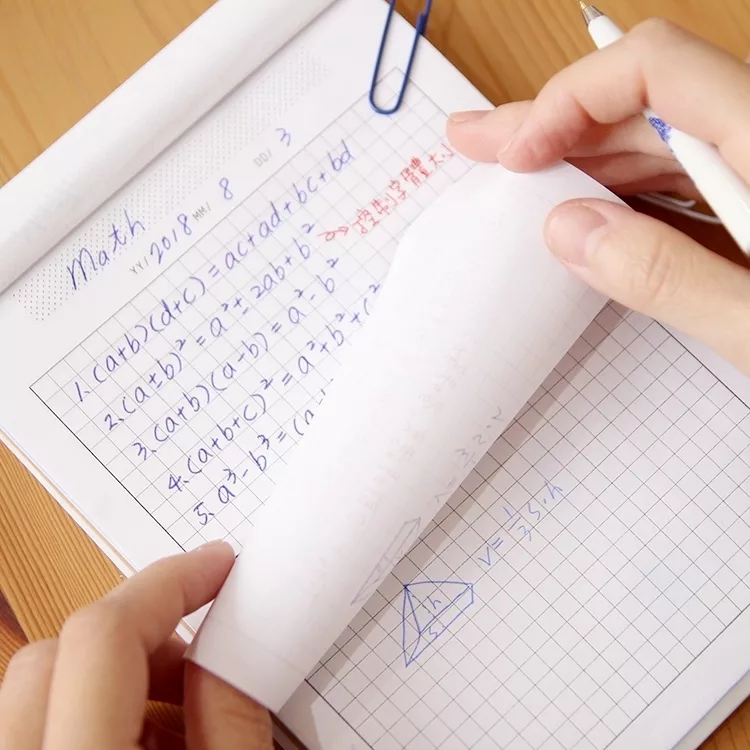 Math
YY/ 2018 MM/ 8 DD/ 3
1. (a+b)(d+c) = ac+ad+bc+bd
2. (a±b)² = a²±2ab+b² >> 控制字體大小
3. (a+b)(a-b) = a²-b²
4. (a+b+c)² = a²+b²+c²
5. a³-b³ = (a-b
V = 1/3 S·h
h
S